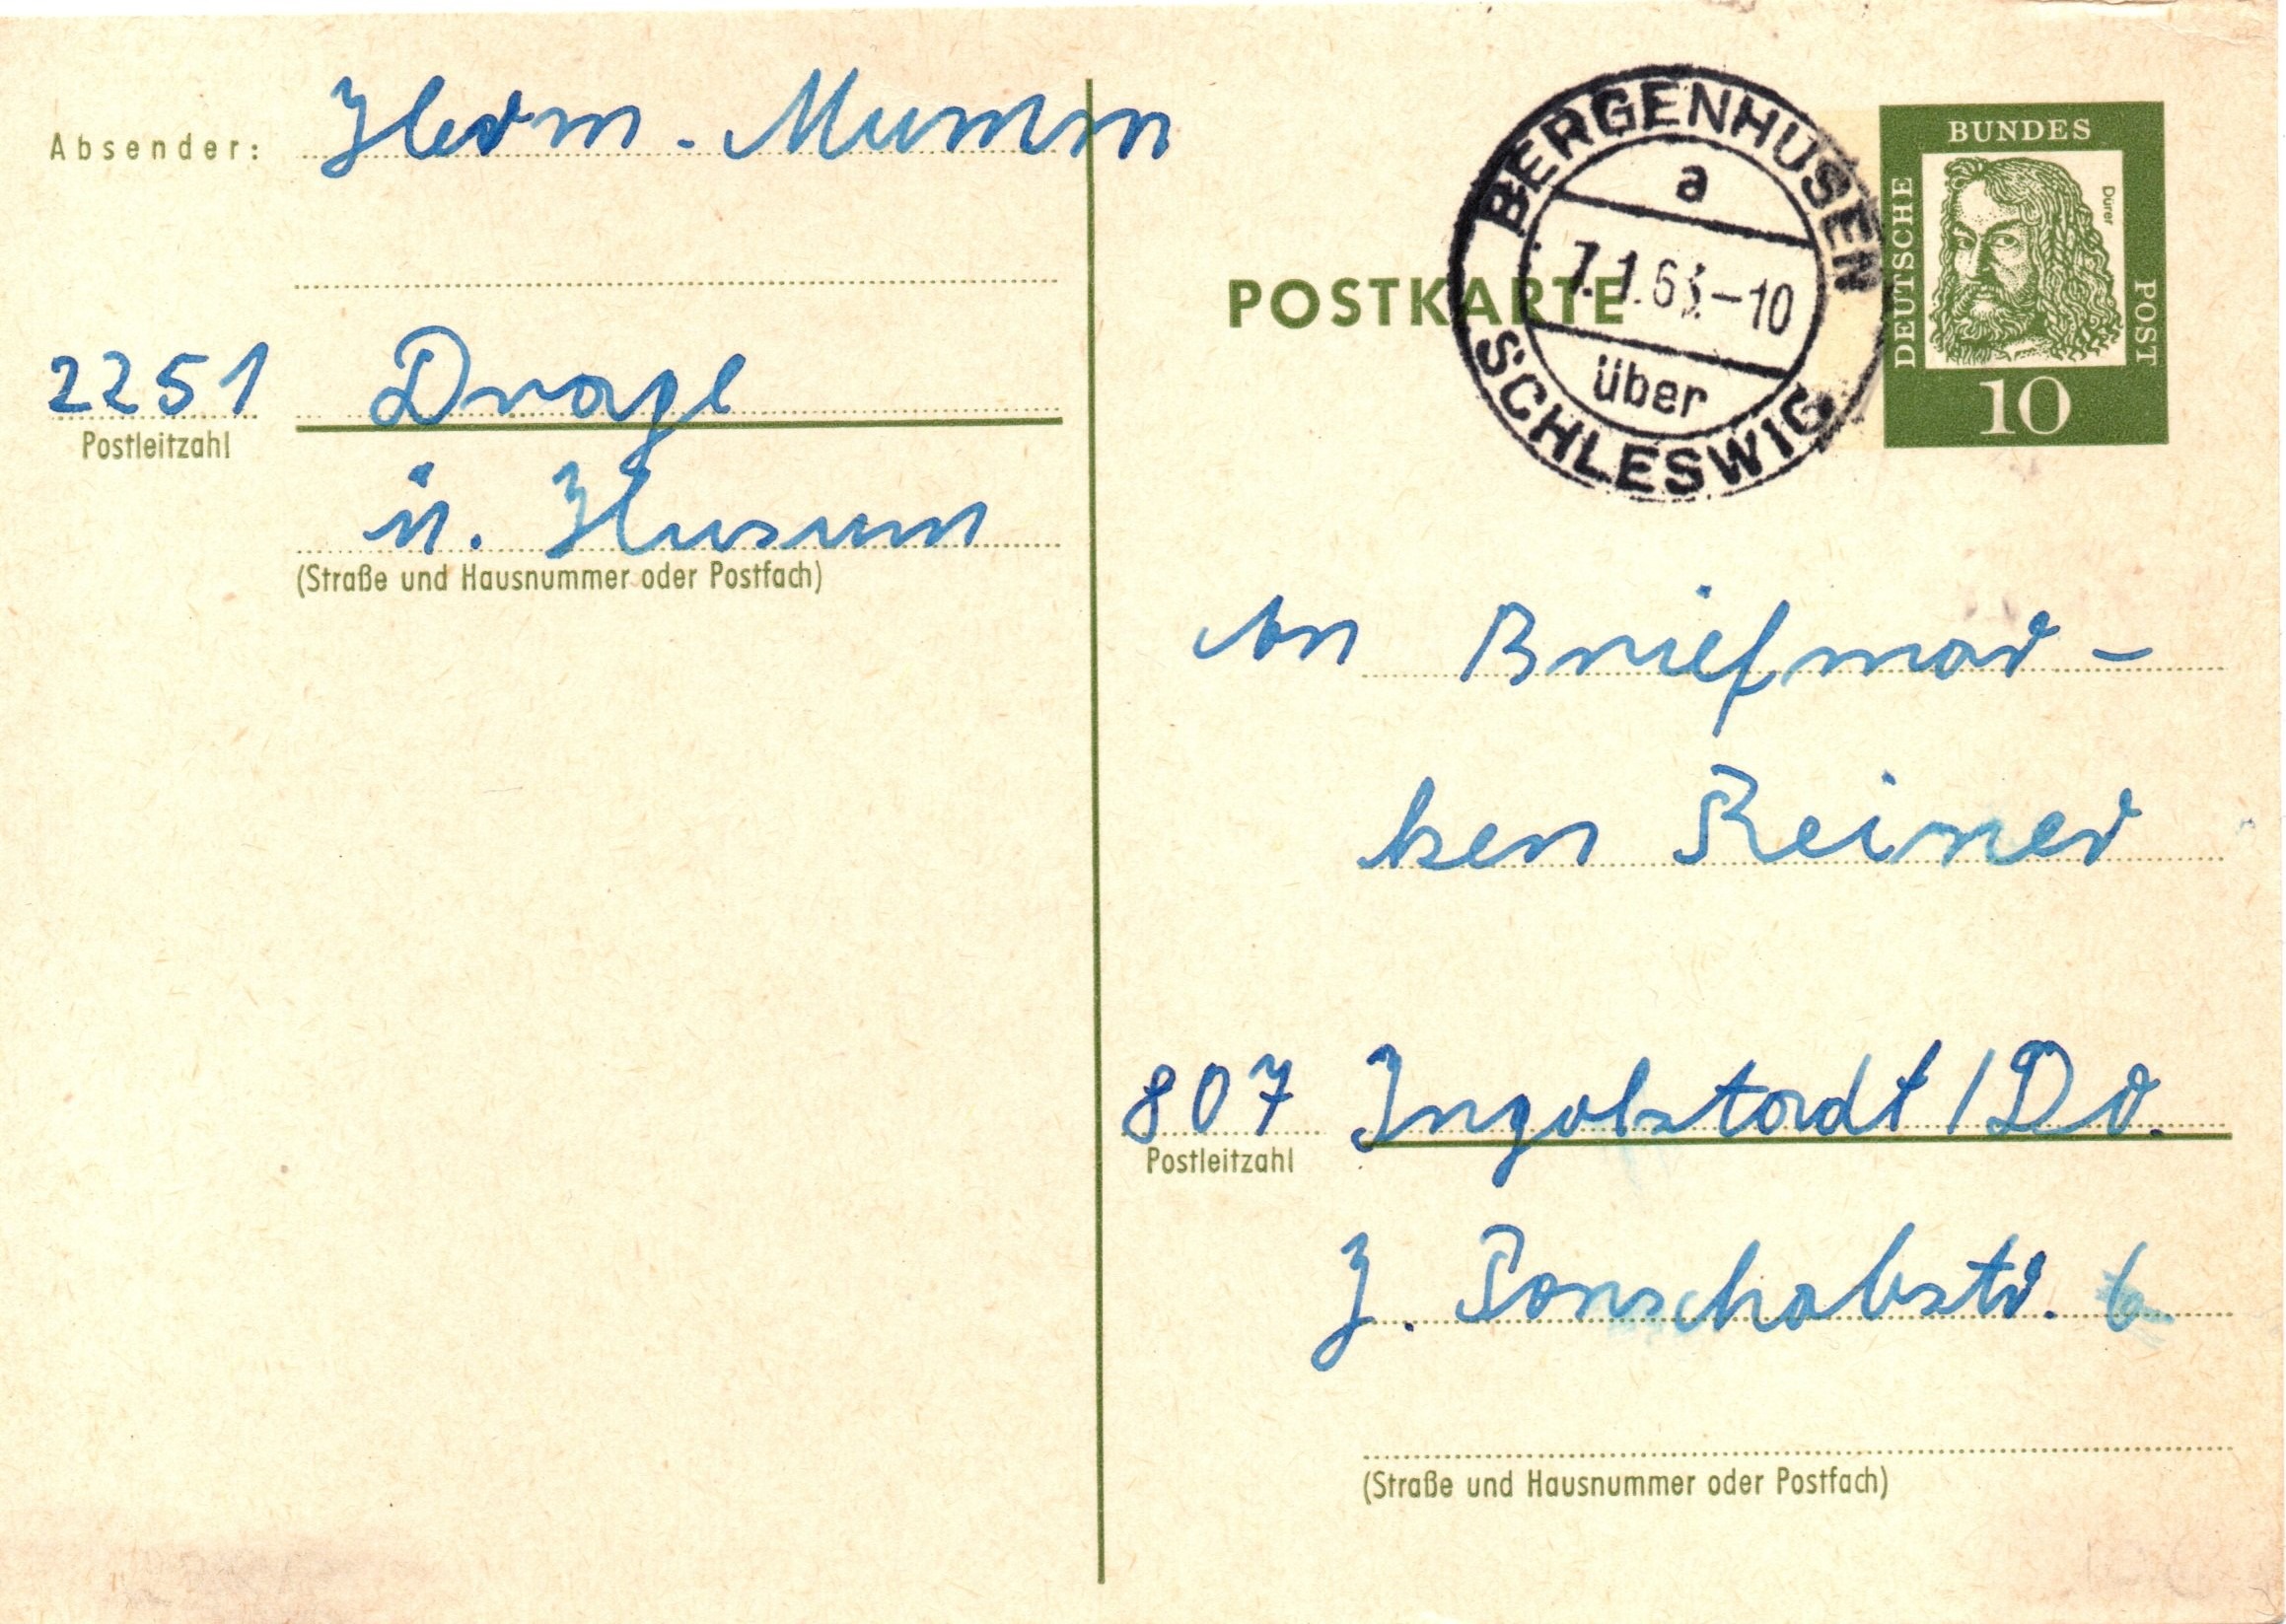 Absender: Herm. Mumm
2251 Drage
Postleitzahl
ü. Husum
(Straße und Hausnummer oder Postfach)
POSTKARTE
BERGENHUSEN
a
7.1.63.-10
über
SCHLESWIG
BUNDES
DEUTSCHE
POST
Dürer
10
An Briefmar-
ken Reiner
807 Ingolstadt/Do.
Postleitzahl
J. Ponschabstr. 6
(Straße und Hausnummer oder Postfach)